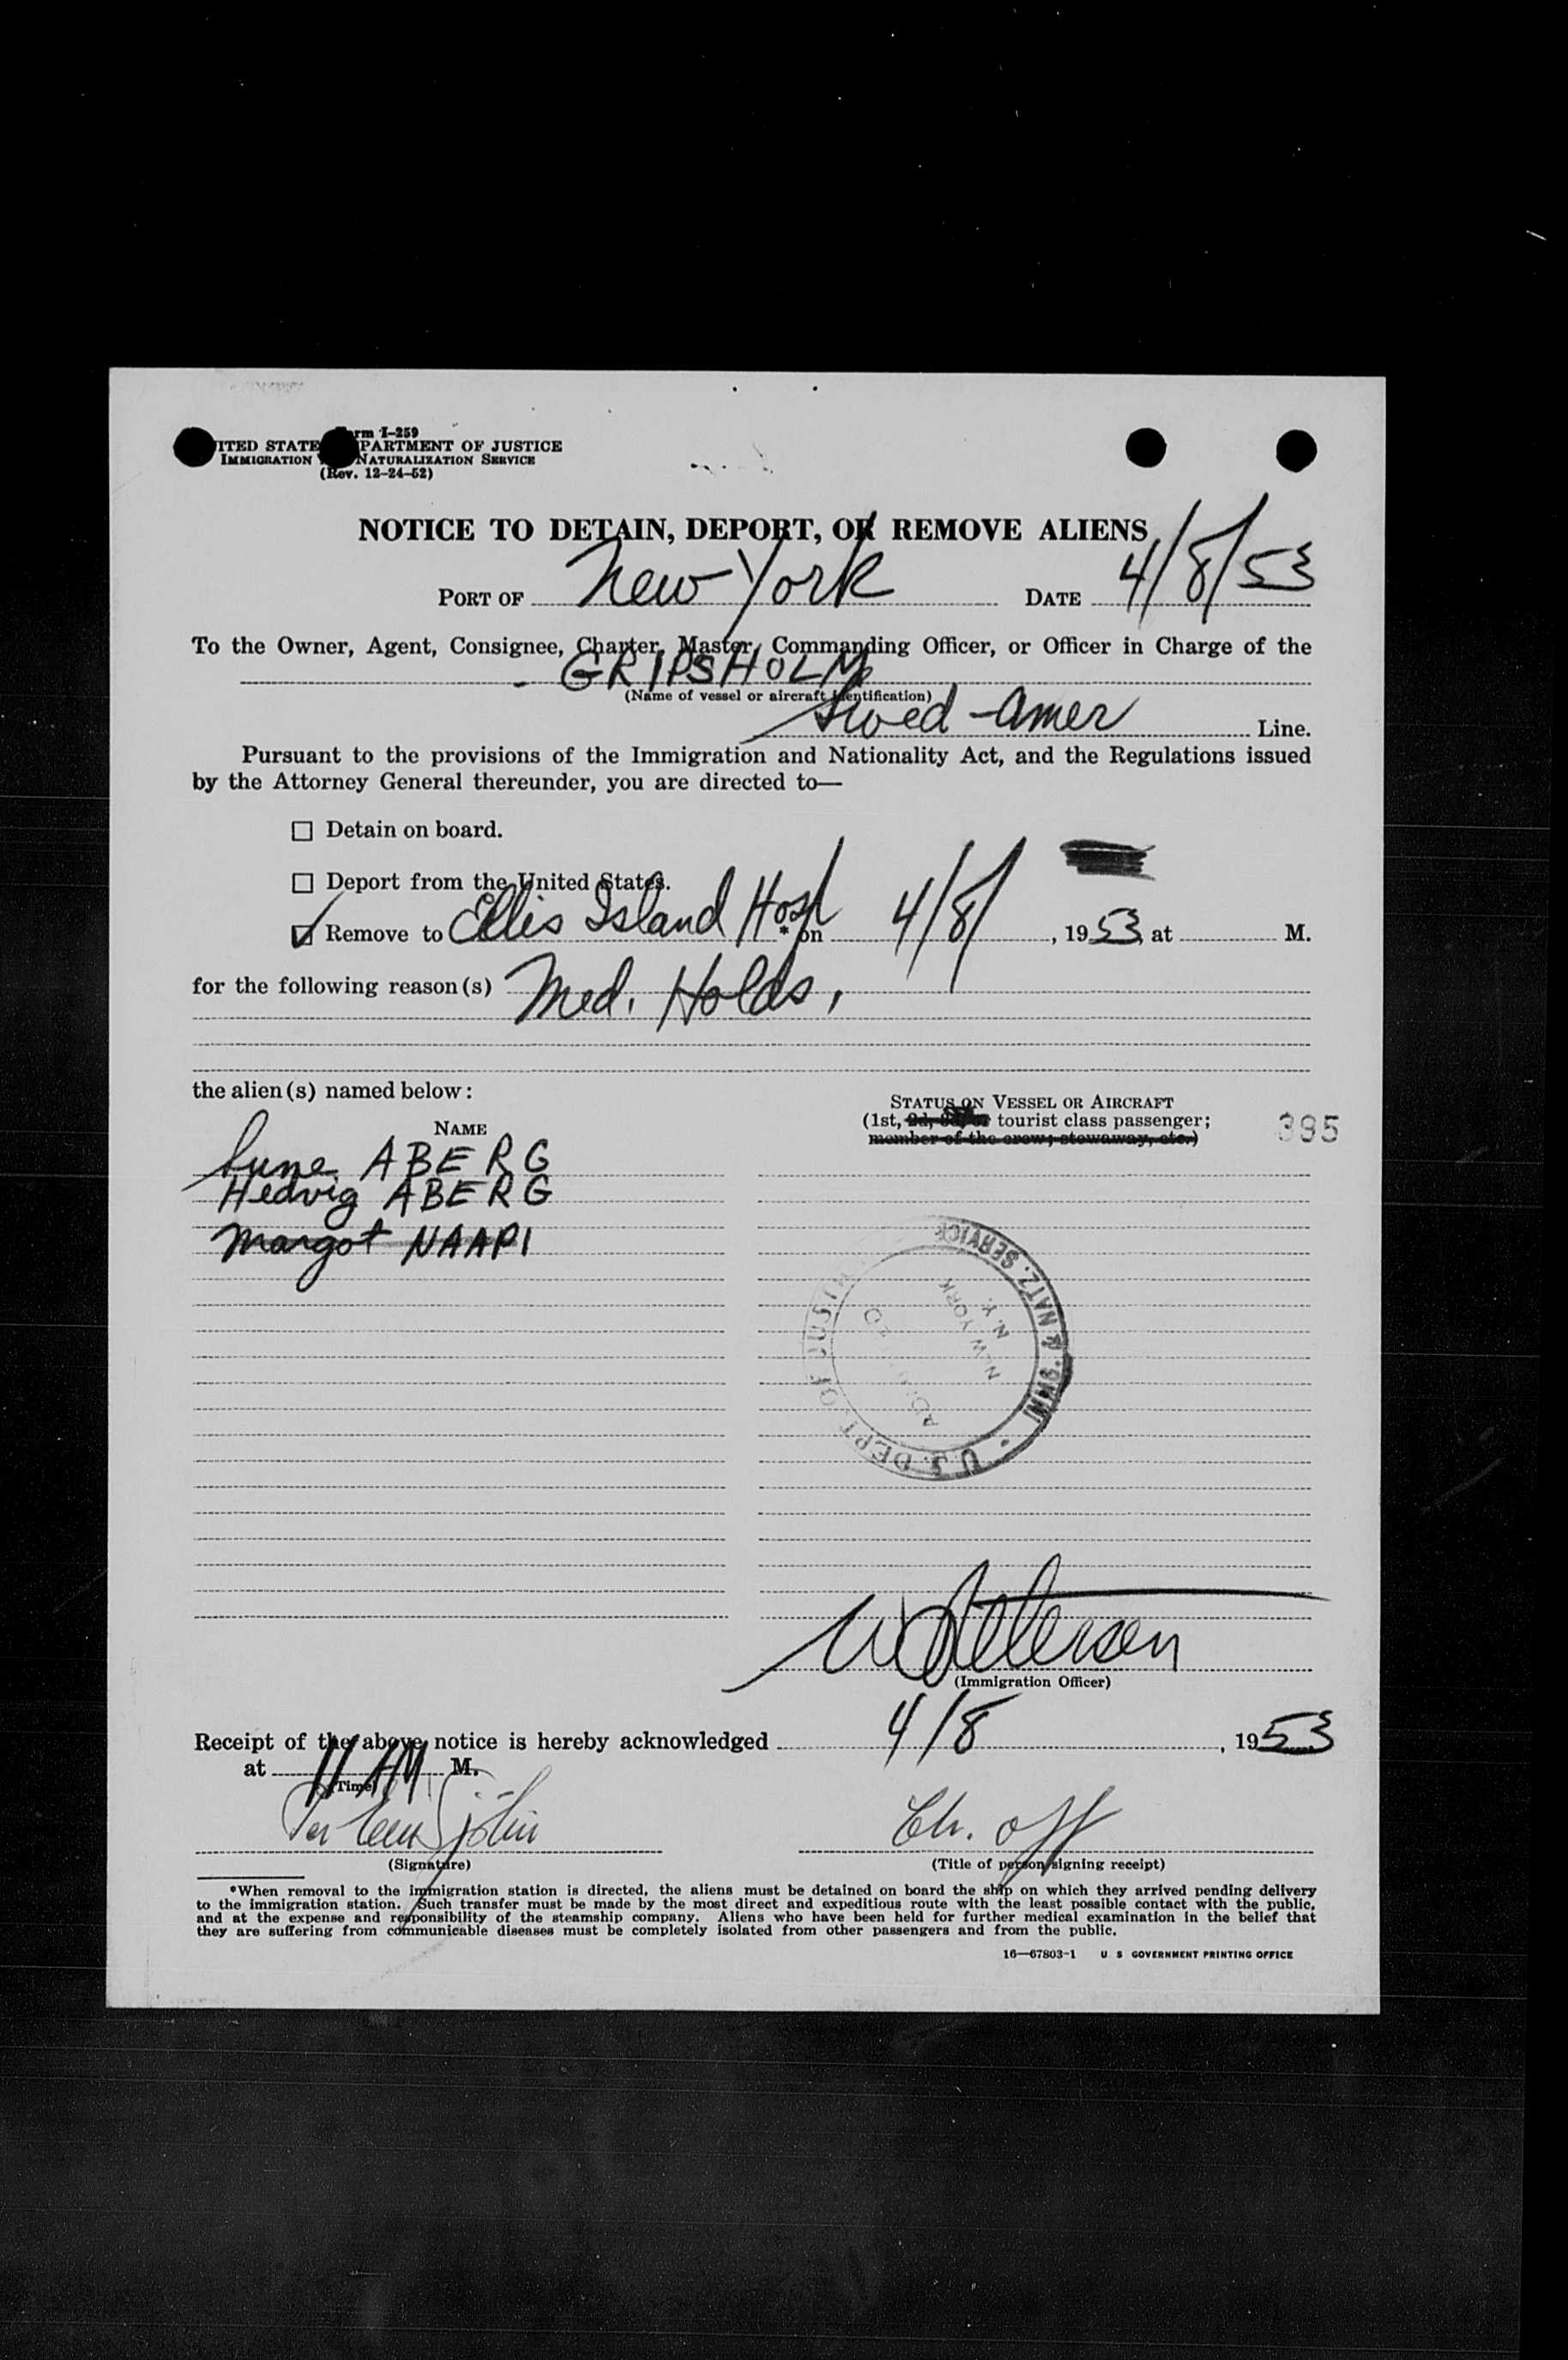 Form I-259
UNITED STATES DEPARTMENT OF JUSTICE
IMMIGRATION NATURALIZATION SERVICE
(Rev. 12-24-52)
NOTICE TO DETAIN, DEPORT, OR REMOVE ALIENS
PORT OF New York DATE 4/8/53
To the Owner, Agent, Consignee, Charter, Master, Commanding Officer, or Officer in Charge of the
- GRIPSHOLM
(Name of vessel or aircraft identification)
Swed-Amer Line.
Pursuant to the provisions of the Immigration and Nationality Act, and the Regulations issued
by the Attorney General thereunder, you are directed to—
☐ Detain on board.
☐ Deport from the United States.
☑ Remove to Ellis Island Hosp * on 4/8/, 1953, at M.
for the following reason(s) Med. Holds,
the alien(s) named below:
STATUS ON VESSEL OR AIRCRAFT
(1st, 2d, 3d, or tourist class passenger;
member of the crew; stowaway, etc.)
395
NAME
Sune ABERG
Hedvig ABERG
Margot NAAPI
U.S. DEPT. OF JUSTICE IMMG. & NATZ. SERVICE
NEW YORK
N.Y.
(Immigration Officer)
Receipt of the above notice is hereby acknowledged 4/8, 1953
at 11 AM M.
(Time)
Ch. off
(Signature) (Title of person signing receipt)
*When removal to the immigration station is directed, the aliens must be detained on board the ship on which they arrived pending delivery
to the immigration station. Such transfer must be made by the most direct and expeditious route with the least possible contact with the public,
and at the expense and responsibility of the steamship company. Aliens who have been held for further medical examination in the belief that
they are suffering from communicable diseases must be completely isolated from other passengers and from the public.
16—67803-1 U S GOVERNMENT PRINTING OFFICE